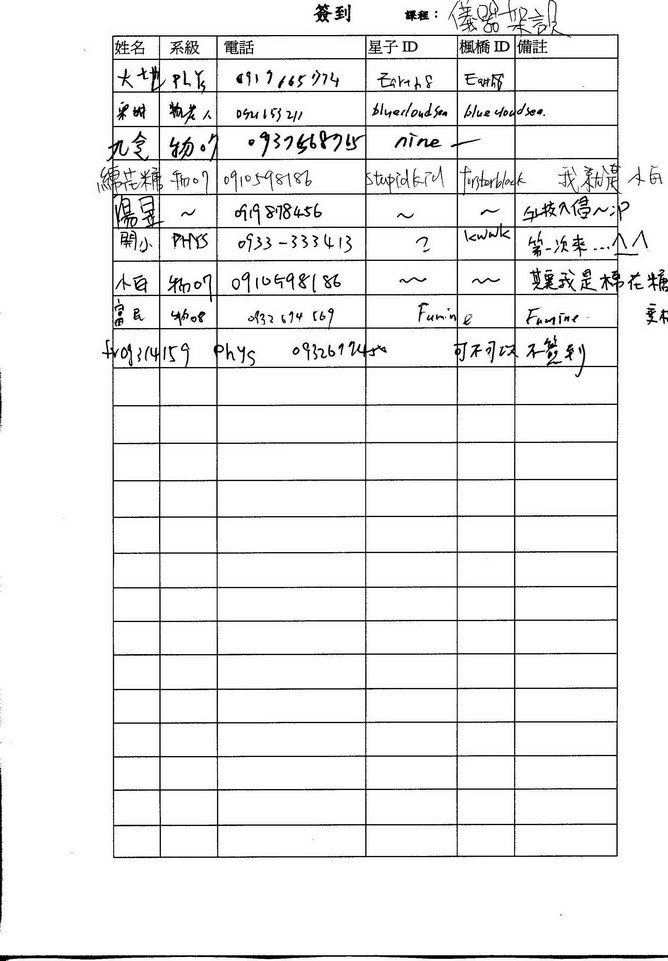 簽到 課程： 儀器架設
姓名 系級 電話 星子 ID 楓橋 ID 備註
大地 PHYS 0919665974 Earth8 Earth8
物老人 0921653211 bluecloudsea bluecloudsea.
九令 物07 0937568765 nine —
綿花糖 物07 0910598186 stupidkid forstarblack 我就是小白
陽昱 ～ 0919878456 ～ ～
開小 PHYS 0933-333413 ? kwwk 第一次來...^^
小白 物07 0910598186 ～ ～ 其實我是棉花糖
富民 物08 0932 674 569 Fumine Fumine.
fr09314159 Phys 可不可以不簽到